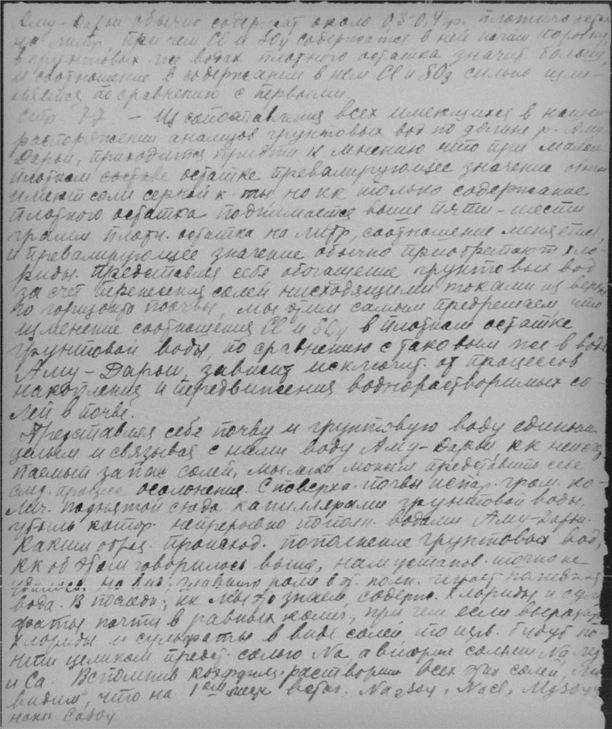 Аму-Дарьи обычно содержат около 0,3-0,4 гр. плотного
на литр, при чем Cl и SO4 содержатся в ней почти поровну
в грунтовых же водах плотного остатка значит. больше,
и соотношение в содержании в нем Cl и SO4 сильно изме-
няется по сравнению с первыми.
Стр. 77. - Из сопоставления всех имеющихся в нашем
распоряжении анализов грунтовых вод по долине р. Аму
Дарьи, приходится придти к мнению что при малом
плотном составе остатке превалирующее значение
имеют соли серной к-ты но кк только содержание
плотного остатка поднимается выше пяти-шести
грамм плотн. остатка на литр, соотношение меняется,
и превалирующее значение обычно приобретают хло
риды. Представляя себе обогащение грунтовых вод
за счет перенесения солей нисходящими токами из верхне
го горизонта почвы, мы этим самым предрешаем что
изменение соотношения Cl и SO4 в плотном остатке
грунтовой воды, по сравнению с таковым же в воде
Аму-Дарьи, зависит исключит. от процессов
накопления и передвижения воднорастворимых со-
лей в почве.
Представляя себе почву и грунтовую воду единым
целым и связывая с ними воду Аму-Дарьи кк неисся
каемый запас солей, мы можем представить себе
след. процесс осолонения. С поверхн. почвы испар. гром. ко-
лич. поднятой сюда капиллярами грунтовой воды,
убыль котор. непрерывно пополн. водами Аму-Дарьи.
Каким образ. происход. пополнение грунтовых вод,
кк об этом говорилось выше, нам установ. точно не
удалось, но вид. главную роль в эт. полн. играет
вода. В последн., кк мы знаем содерж. хлориды и суль
фаты почти в равных колич., при чем если выразить
хлориды и сульфаты в виде солей, то перв. будут по-
чти целиком предст. солью Na, а вторые солями Na, Mg
и Ca. Вспомнив коэффиц. растворим. всех этих солей, мы
видим, что на 1ом месте встан. Na2SO4, NaCl, MgSO4
наки CaSO4